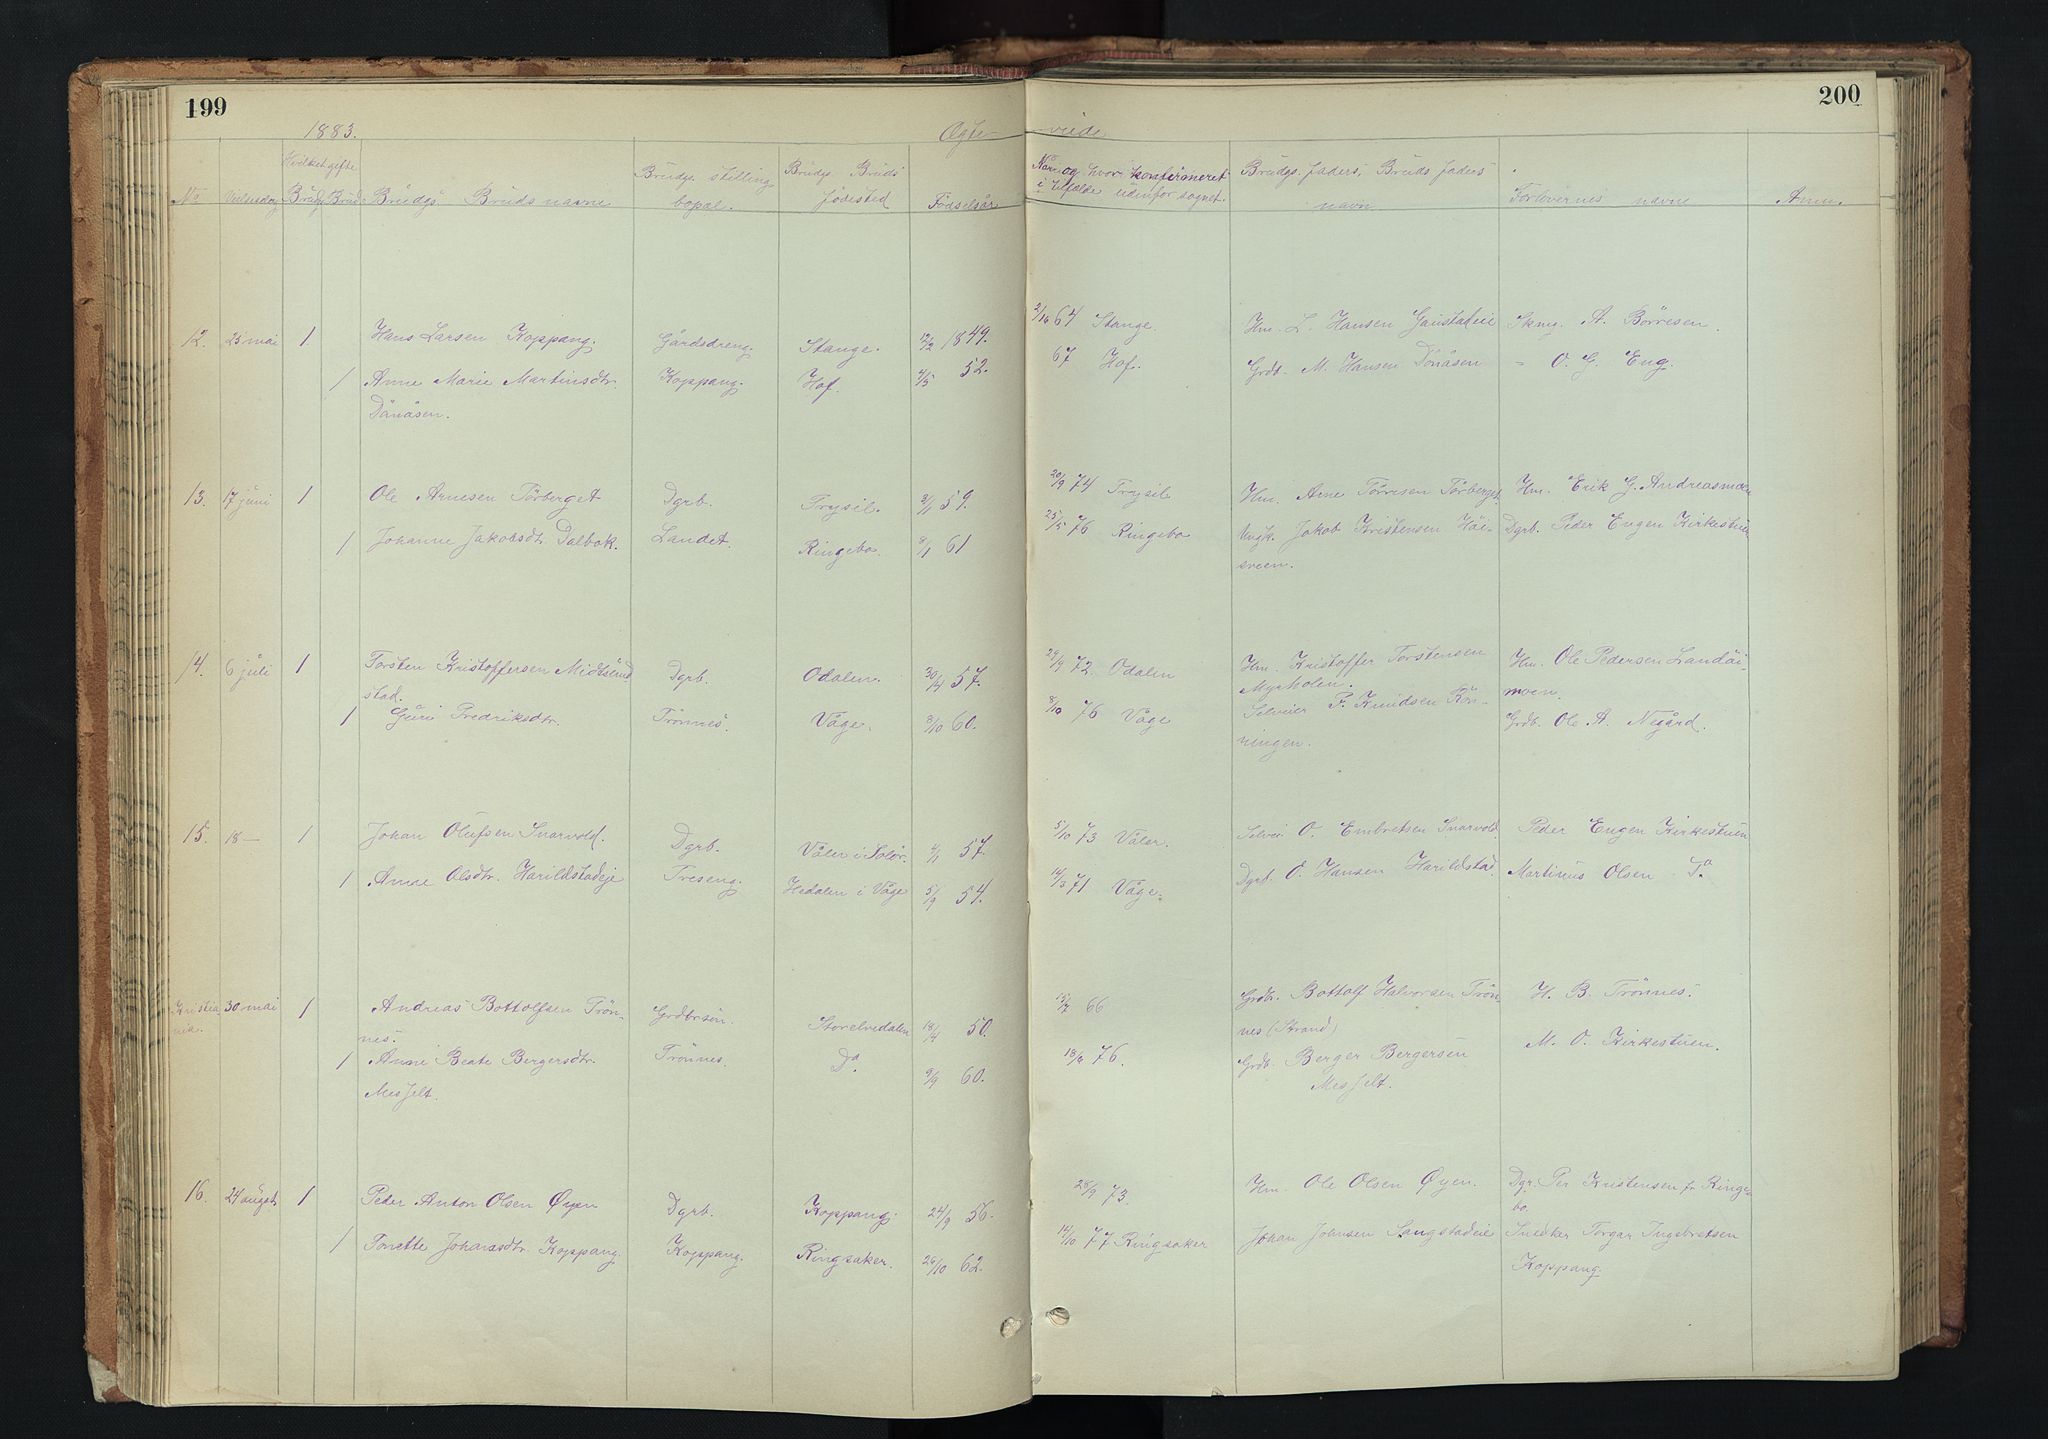 199
200
1883.
Ægte- viede
No Vielsesdag Hvilket gifte Brudg. Brud Brudgs. Bruds navne Brudgs. stilling bopæl. Brudgs. Bruds fødested Fødselsår Når og hvor konfirmeret i tilfælde udenfor sognet. Brudgs. faders, Bruds faders navn Forlovernes navne Anm.
12. 25 mai 1 Hans Larsen Koppang. Gårdsdreng. Stange. 12/2 1849. 2/10 64 Stange. Hm. L. Hansen Gaustadeie Skmg. A. Börresen.
1 Anne Marie Martinsdtr. Koppang. Hof. 4/5 52. 67 Hof. Grdb. M. Hansen Dönåsen - O. G. Eng.
Dönåsen.
13. 17 juni 1 Ole Arnesen Törberget Dgrb. Trysil. 3/1 59. 20/9 74 Trysil Hm. Arne Törresen Törberget Hm. Erik G. Andreasmoen
1 Johanne Jakobsdtr. Dalbak. Landet. Ringebo. 8/1 61 25/5 76 Ringebo Ungk. Jakob Kristensen Höi- Dgrb. Peder Eugen Kirkestuen
sveen.
14. 6 juli 1 Torsten Kristoffersen Midtsund Dgrb. Odalen. 30/4 57. 29/9 72. Odalen Hm. Kristoffer Torstensen Hm. Ole Pedersen Landöi-
stad. Myrholen. moen.
1 Guri Fredriksdtr. Trönnes. Våge. 3/10 60. 8/10 76 Våge Selveier F. Knudsen Rön- Grdb. Ole A. Negård.
ningen.
15. 18 — 1 Johan Olufsen Snarvold. Dgrb. Våler i Solör. 4/1 57. 5/10 73 Våler. Selvei. O. Embretsen Snarvold Peder Eugen Kirkestuen
1 Anne Olsdtr. Harildstadeje Treseng. Hedalen i Våge 5/9 54. 14/3 71 Våge. Dgrb. O. Hansen Harildstad Martinus Olsen
Kristia- 30 mai 1 Andreas Bottolfsen Trön- Grdbrsön. Storelvedalen 18/4 50. 15/7 66 Grdbr. Bottolf Halvorsen Trön H. B. Trönnes.
nia. nes. nes (Strand)
1 Anne Beate Bergersdtr. Trönnes. Do. 9/9 60. 18/6 76. Grdb. Berger Bergersen M. O. Kirkestuen.
Mesfelt. Mesfelt.
16. 24 august 1 Peder Anton Olsen Øyen Dgrb. Koppang. 24/9 56. 28/9 73. Hm. Ole Olsen Øyen. Dgr. Per Kristensen fr. Ringe-
bo.
1 Tonette Johansdtr. Koppang. Koppang. Ringsaker. 26/10 62. 14/10 77 Ringsaker Johan Johnsen Sangstadeie Snedker Torgar Ingebretsen
Koppang.